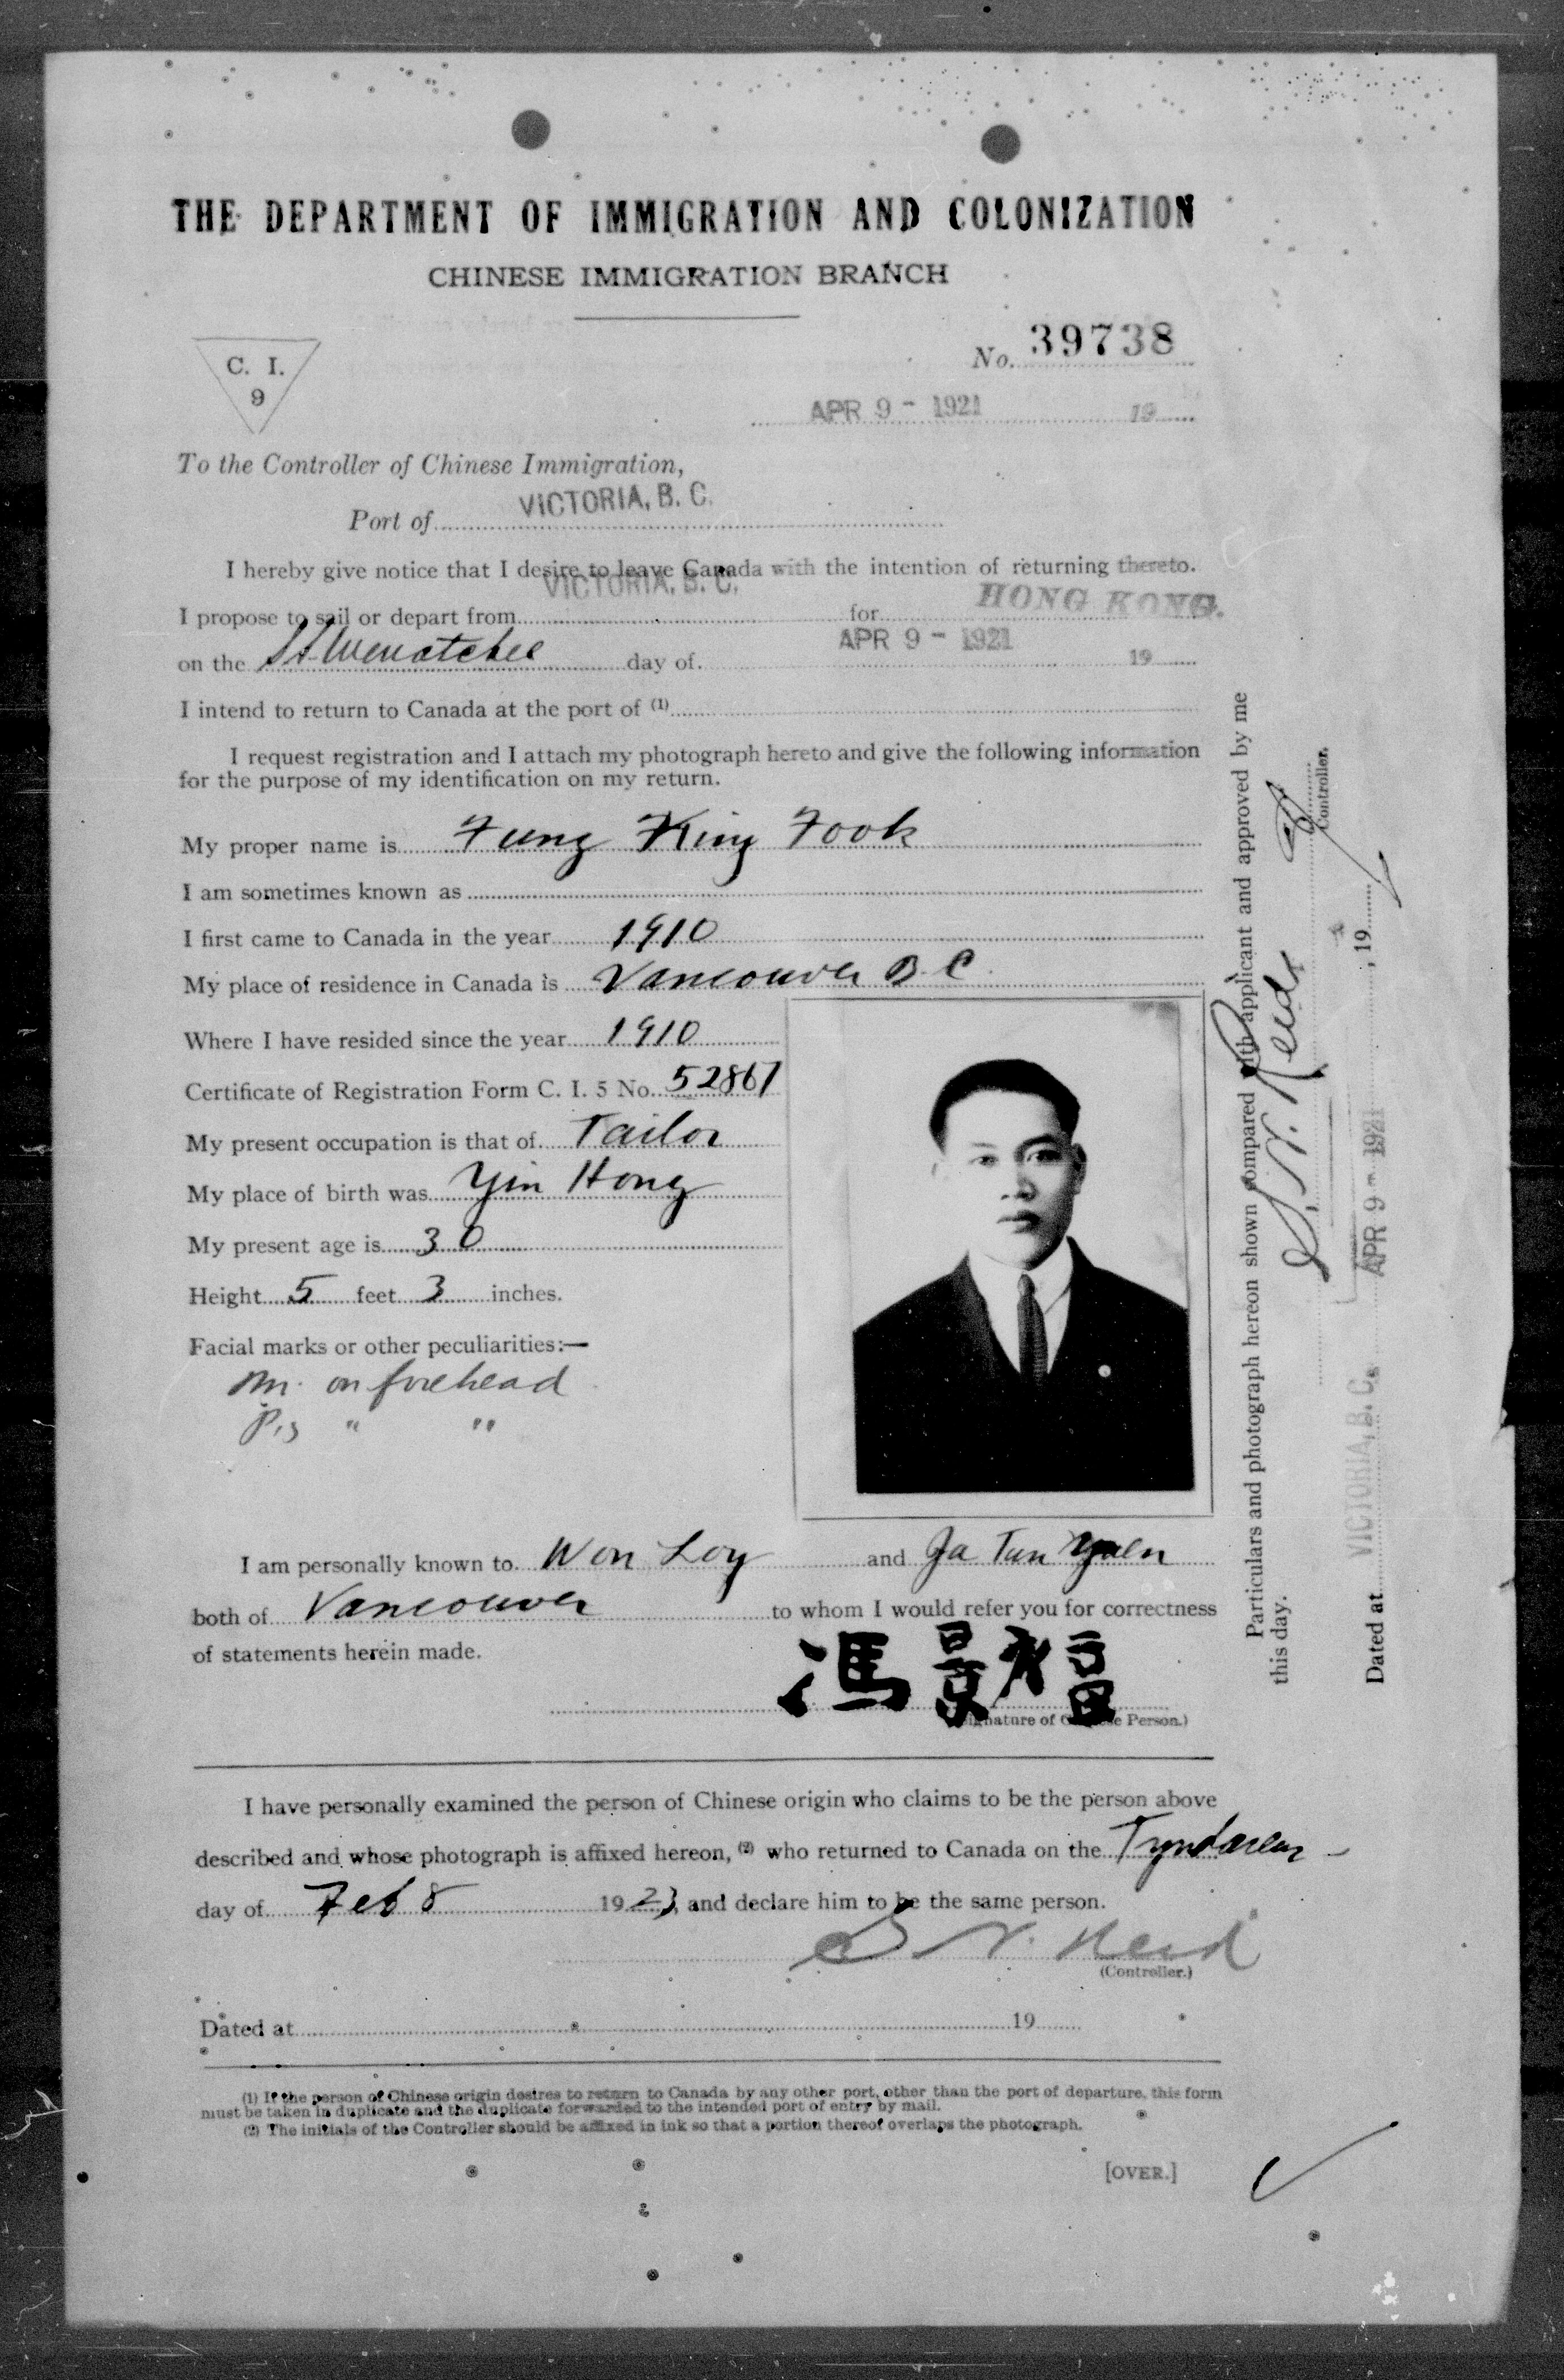 THE DEPARTMENT OF IMMIGRATION AND COLONIZATION
CHINESE IMMIGRATION BRANCH
C. I.
9
No. 39738
APR 9 - 1921 19
To the Controller of Chinese Immigration,
Port of VICTORIA, B. C.
I hereby give notice that I desire to leave Canada with the intention of returning thereto.
I propose to sail or depart from VICTORIA, B. C. for HONG KONG.
on the St Wenatchee day of APR 9 - 1921 19
I intend to return to Canada at the port of (1)
I request registration and I attach my photograph hereto and give the following information
for the purpose of my identification on my return.
My proper name is Fung King Fook
I am sometimes known as
I first came to Canada in the year 1910
My place of residence in Canada is Vancouver B C
Where I have resided since the year 1910
Certificate of Registration Form C. I. 5 No. 52867
My present occupation is that of Tailor
My place of birth was Yin Hong
My present age is 30
Height 5 feet 3 inches.
Facial marks or other peculiarities:—
m. on forehead
Pis " "
I am personally known to Won Loy and Ja Tan Yuen
both of Vancouver to whom I would refer you for correctness
of statements herein made.
馮景福
(Signature of Chinese Person.)
I have personally examined the person of Chinese origin who claims to be the person above
described and whose photograph is affixed hereon, (2) who returned to Canada on the Tyndareus
day of Feb 8 1923, and declare him to be the same person.
S N. Reid
(Controller.)
Dated at 19
(1) If the person of Chinese origin desires to return to Canada by any other port, other than the port of departure, this form
must be taken in duplicate and the duplicate forwarded to the intended port of entry by mail.
(2) The initials of the Controller should be affixed in ink so that a portion thereof overlaps the photograph.
[OVER.]
Particulars and photograph hereon shown compared with applicant and approved by me
this day.
S. N. Reid
Controller.
Dated at VICTORIA, B. C. APR 9 - 1921, 19